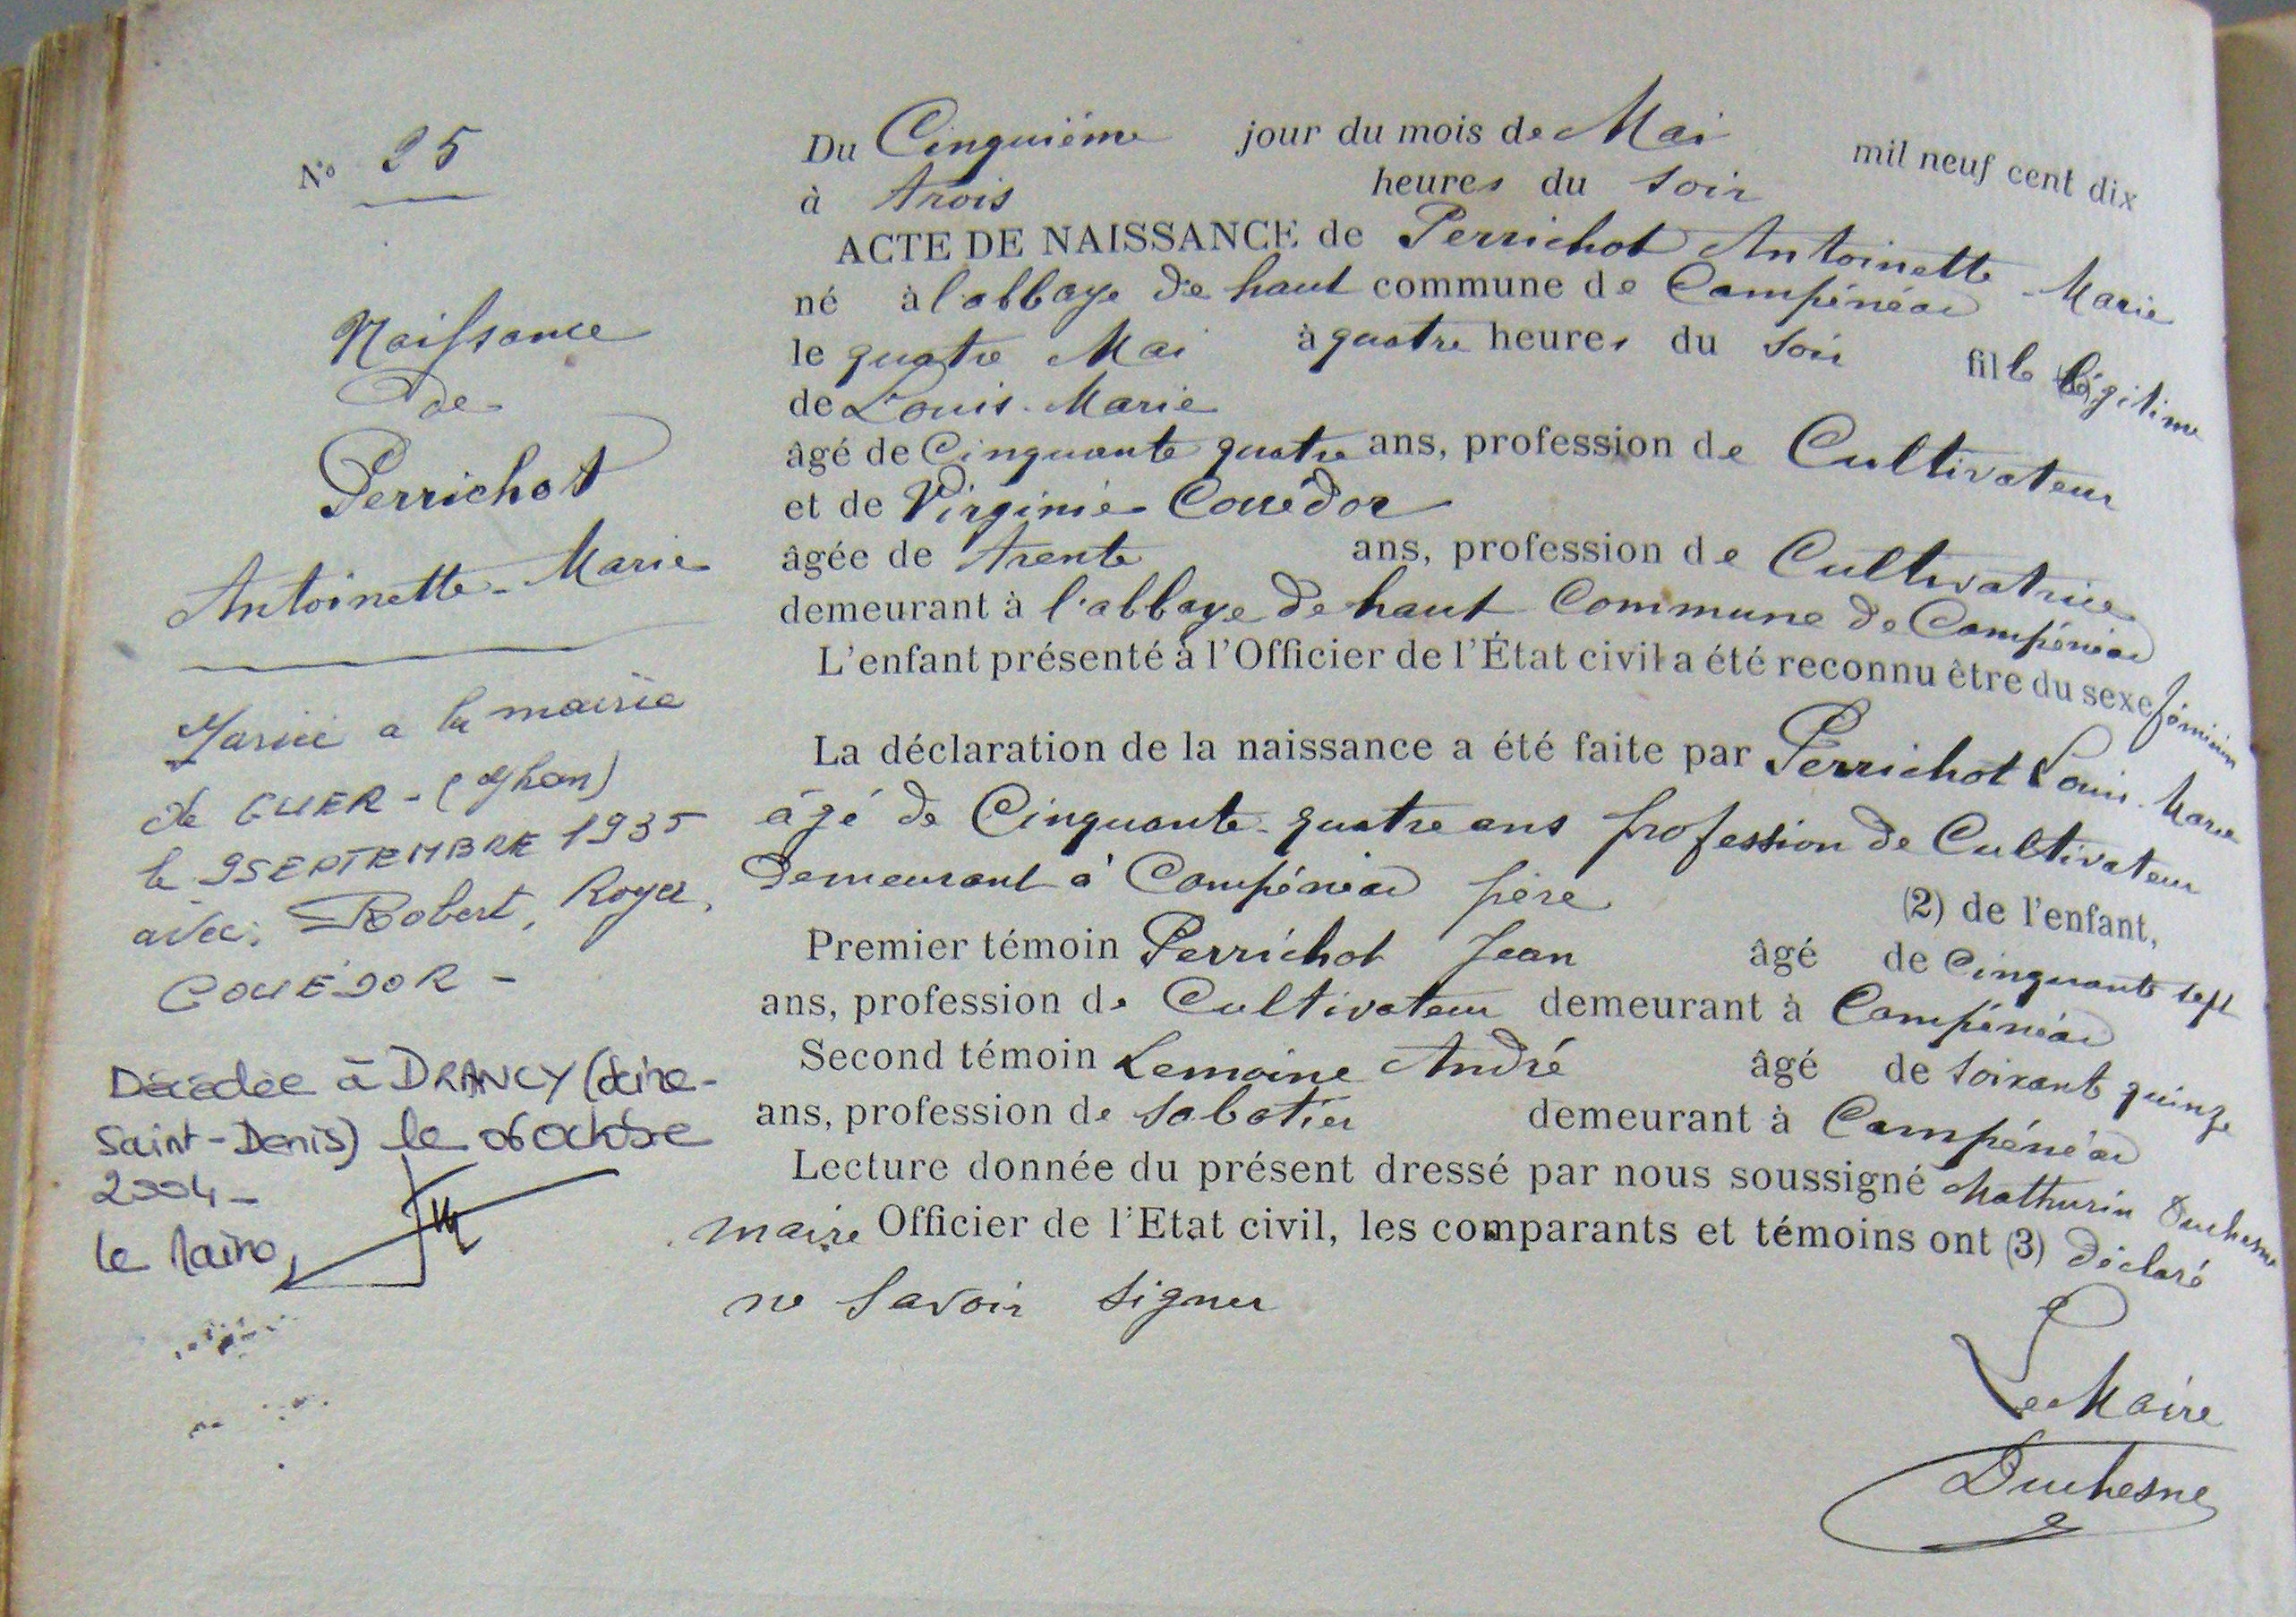 N° 25
Naissance
de
Perrichot
Antoinette-Marie
Marié a la mairie
de GUER - (Mhan)
le 9 SEPTEMBRE 1935
avec Robert, Roger,
COUÉDOR -
Décédée à DRANCY (Seine-
Saint-Denis) le 06 octobre
2004 -
le Maire,
Du Cinquième jour du mois de Mai mil neuf cent dix
à trois heures du soir
ACTE DE NAISSANCE de Perrichot Antoinette-Marie
né à l'abbaye de haut commune de Campénéac
le quatre Mai à quatre heures du soir fille légitime
de Louis-Marie
âgé de Cinquante quatre ans, profession de Cultivateur
et de Virginie Couédor
âgée de trente ans, profession de Cultivatrice
demeurant à l'abbaye de haut Commune de Campénéac
L'enfant présenté à l'Officier de l'État civil a été reconnu être du sexe féminin
La déclaration de la naissance a été faite par Perrichot Louis-Marie
âgé de Cinquante-quatre ans profession de Cultivateur
demeurant à Campénéac père (2) de l'enfant,
Premier témoin Perrichot Jean âgé de Cinquante sept
ans, profession de Cultivateur demeurant à Campénéac
Second témoin Lemoine André âgé de soixante quinze
ans, profession de sabotier demeurant à Campénéac
Lecture donnée du présent dressé par nous soussigné Mathurin Duchesne
maire Officier de l'Etat civil, les comparants et témoins ont (3) déclaré
ne savoir signer
Le Maire
Duchesne